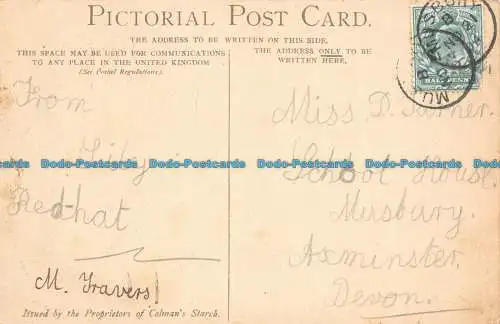 PICTORIAL POST CARD.
THE ADDRESS TO BE WRITTEN ON THIS SIDE.
THIS SPACE MAY BE USED FOR COMMUNICATIONS
TO ANY PLACE IN THE UNITED KINGDOM
(See Postal Regulations).
THE ADDRESS ONLY TO BE
WRITTEN HERE.
HALFPENNY
From
Lily
Redhat
M. Travers
Issued by the Proprietors of Colman's Starch.
Miss D.
School House
Musbury
Axminster
Devon.
Dodo-Postcards Dodo-Postcards Dodo-Postcards Dodo-Postcards Dodo-Postcards